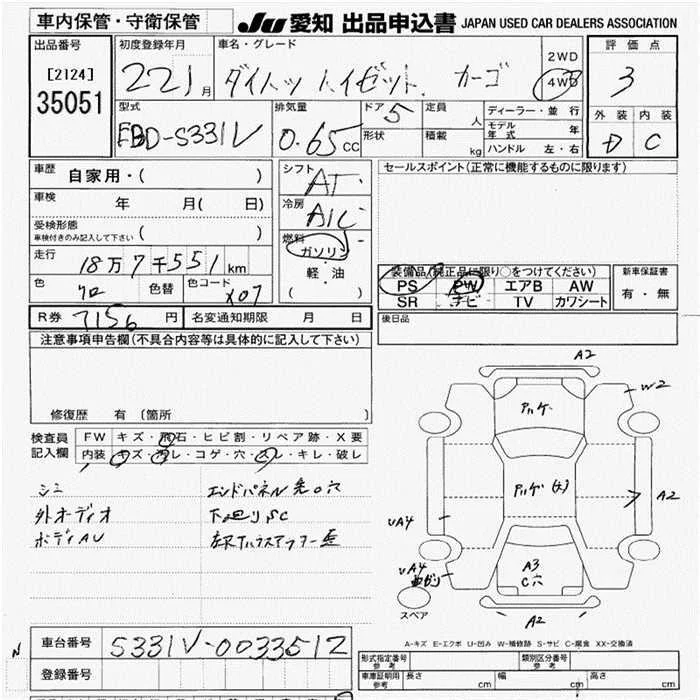 車内保管・守衛保管 JU 愛知 出品申込書 JAPAN USED CAR DEALERS ASSOCIATION
出品番号 初度登録年月 車名・グレード 評価点
[2124] 22 1月 ダイハツ ハイゼット カーゴ 2WD 4WD 3
35051
型式 排気量 ドア 5 定員 人 ディーラー・並行 外装 内装
EBD-S331V 0.65cc 形状 積載 kg モデル年式 年 D C
ハンドル 左・右
車歴 自家用・( ) シフト AT セールスポイント(正常に機能するものに限ります)
車検 年 月( 日) 冷房 A/C
受検形態
車検付きのみ記入して下さい ( ) 燃料 ガソリン
走行 18万7千551km 軽・油 装備品(純正品に限り○をつけてください) 新車保証書
色 クロ 色替 色コード X07 ( ) PS PW エアB AW 有・無
SR ナビ TV カワシート
R券 7156円 名変通知期限 月 日 後日品
注意事項申告欄(不具合内容等は具体的に記入して下さい)
A2
W2
アルゲ
修復歴 有 [箇所
検査員 FW キズ・飛石・ヒビ割・リペア跡・X要
記入欄 内装 キズ・汚レ・コゲ・穴・スレ・キレ・破レ
シミ エンドパネル 穴 アルゲ A2
外オーディオ 下廻りSC UA4
ボディAU
UA4 A3
C穴
スペア A2
車台番号 S331V-0033512 A-キズ E-エクボ U-凹み W-補修跡 S-サビ C-腐食 XX-交換済
N
登録番号 形式指定番号 参考 類別区分番号 参考
車庫証明用 参考 長さ cm 幅 cm 高さ cm